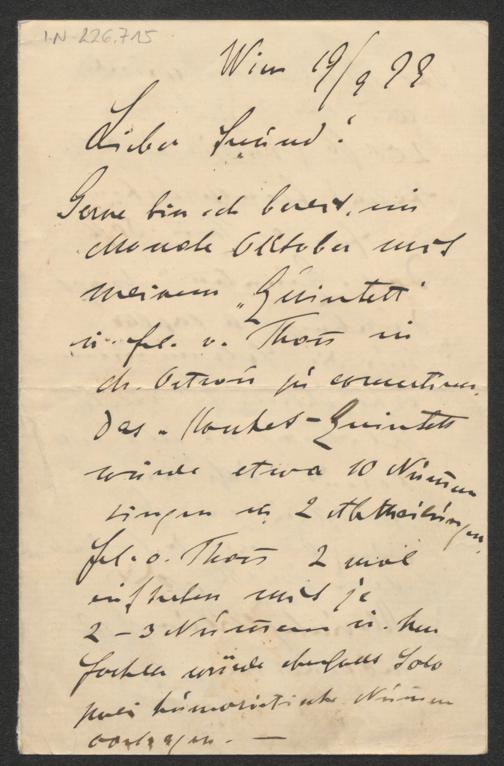 I.N. 226.715
Wien 19/9 98
Lieber Freund!
Gerne bin ich bereit, im
Monate Oktober mit
meinem „Quintett“
u. frl. v. Thoß in
M. Ostrau zu concertiren.
Das „Udel-Quintett
würde etwa 10 Nummern
singen in 2 Abtheilungen
frl. v. Thoß 2 mal
mit je
2-3 Nummern u. Herr
würde ebenfalls Solo
zwei humoristische Nummern
vortragen. —